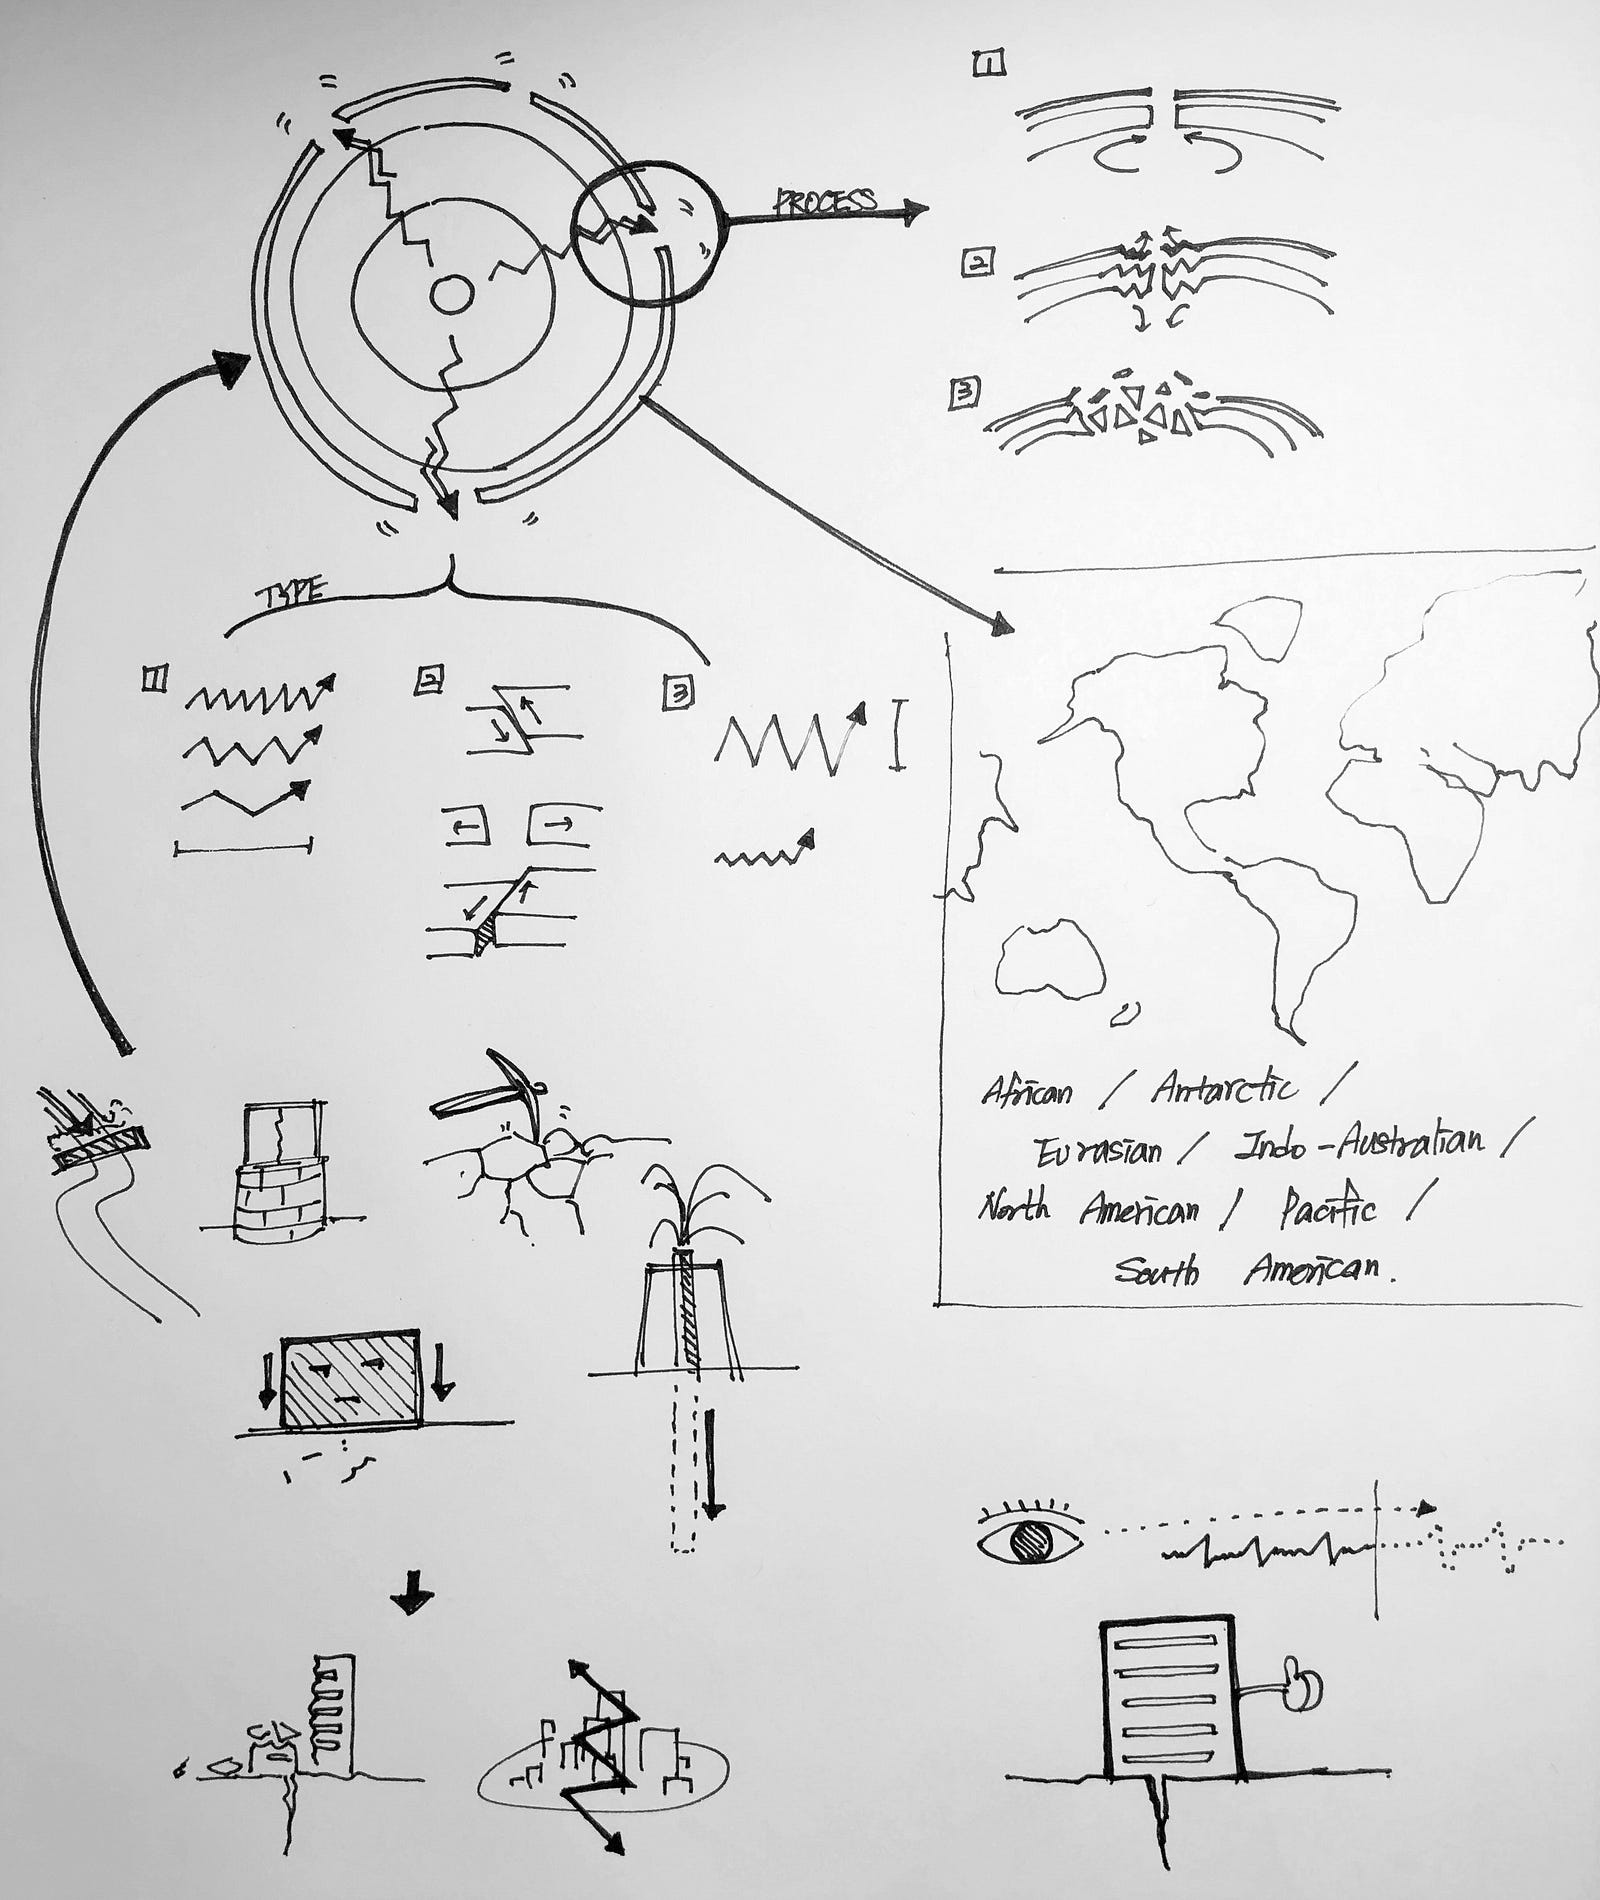 1
PROCESS
2
3
TYPE
1
2
3
African / Antarctic /
Eurasian / Indo-Australian /
North American / Pacific /
South American.